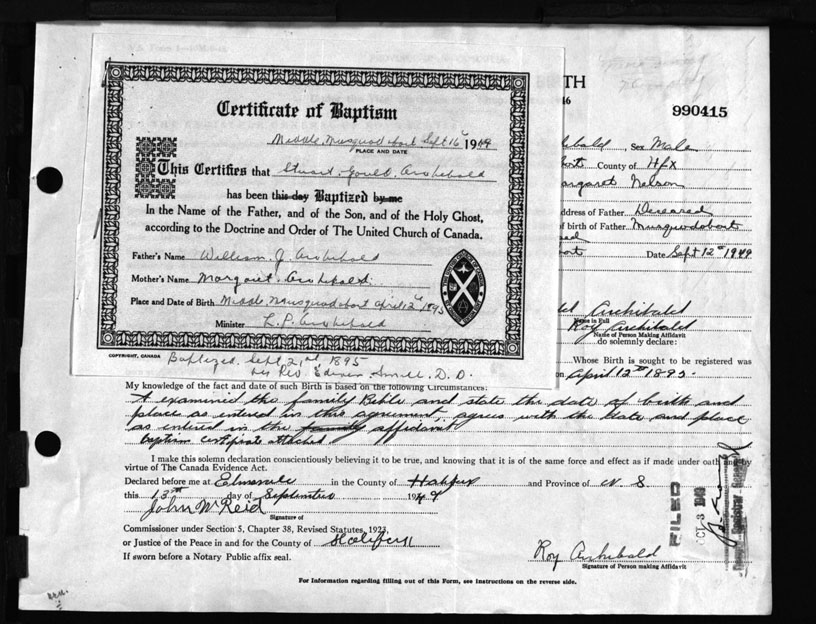 TH
46
990415
Certificate of Baptism
Middle Musquodoboit Sept 16 1949
PLACE AND DATE
This Certifies that Stuart Gould Archibald
has been this day Baptized by me
In the Name of the Father, and of the Son, and of the Holy Ghost,
according to the Doctrine and Order of The United Church of Canada.
Father's Name William J. Archibald
Mother's Name Margaret Archibald
Place and Date of Birth Middle Musquodoboit April 12 1895
Minister L. P. Archibald
COPYRIGHT, CANADA
Baptized Sept 21st 1895
by Rev. Edwin D. D.
hibald, Sex Male
boit County of Hfx
argaret Nelson
ddress of Father Deceased
of birth of Father Musquodoboit
ed
boit Date Sept 12th 1949
Archibald
Name in Full
Roy Archibald
Name of Person Making Affidavit
do solemnly declare:
Whose Birth is sought to be registered was
on April 12th 1895.
My knowledge of the fact and date of such Birth is based on the following Circumstances:
I examined the family Bible and state the date of birth and
place as entered in this agreement, agrees with the date and place
as entered in the family affidavit
baptism certificate attached
I make this solemn declaration conscientiously believing it to be true, and knowing that it is of the same force and effect as if made under oath and by
virtue of The Canada Evidence Act.
Declared before me at Elmsvale in the County of Halifax and Province of N. S.
this 13th day of September 1949
John W Reid
Signature of
Commissioner under Section 5, Chapter 38, Revised Statutes, 1923,
or Justice of the Peace in and for the County of Halifax
If sworn before a Notary Public affix seal.
Roy Archibald
Signature of Person making Affidavit
FILED
OCT 3
For Information regarding filling out of this Form, see Instructions on the reverse side.